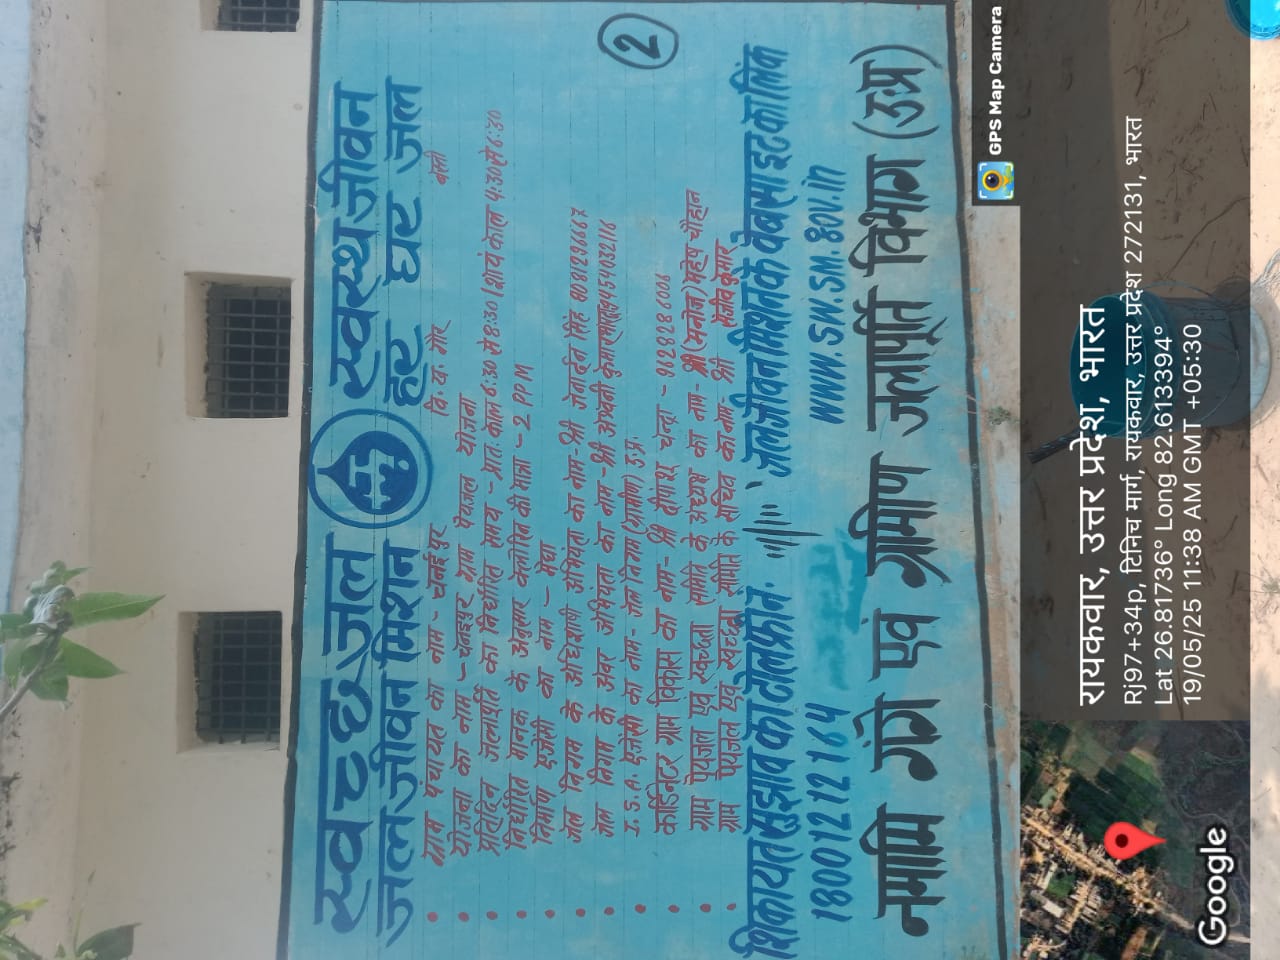 स्वच्छ जल स्वस्थ जीवन
जल जीवन मिशन हर घर जल
2
ग्राम पंचायत का नाम - चनईपुर वि. ख. गौर बस्ती
योजना का नाम - चनईपुर ग्राम पेयजल योजना
प्रतिदिन जलापूर्ति का निर्धारित समय - प्रातः काल 6:30 से 8:30 शायं काल 4:30 से 6:30
निर्धारित मानक के अनुसार क्लोरिन की मात्रा - 2 PPM
निर्माण एजेंसी का नाम - मेघा
जल निगम के अधिशाषी अभियंता का नाम - श्री जनार्दन सिंह
जल निगम के अवर अभियंता का नाम - श्री अश्वनी कुमार
I.S.A. एजेंसी का नाम - जल निगम (ग्रामीण) उ.प्र.
कार्डिनेटर ग्राम विकास का नाम - श्री चन्द्रा -
ग्राम पेयजल एवं स्वच्छता समिति के अध्यक्ष का नाम - श्री (मनोज) महेष चौहान
ग्राम पेयजल एवं स्वच्छता समिति के सचिव का नाम - श्री संजीव कुमार
शिकायत सुझाव का टोलफ्रीन. जल जीवन मिशन के वेबसाइट का लिंक
1800 12 12 164 www.sw.sm.gov.in
नमामि गंगे एवं ग्रामीण जलापूर्ति विभाग (उ.प्र)
GPS Map Camera
रायकवार, उत्तर प्रदेश, भारत
Rj97+34p, टिनिच मार्ग, रायकवार, उत्तर प्रदेश 272131, भारत
Lat 26.81736° Long 82.613394°
19/05/25 11:38 AM GMT +05:30
Google